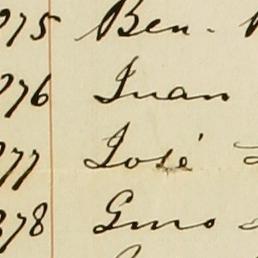 975 Ben.
976 Juan
977 José
978 Gmo